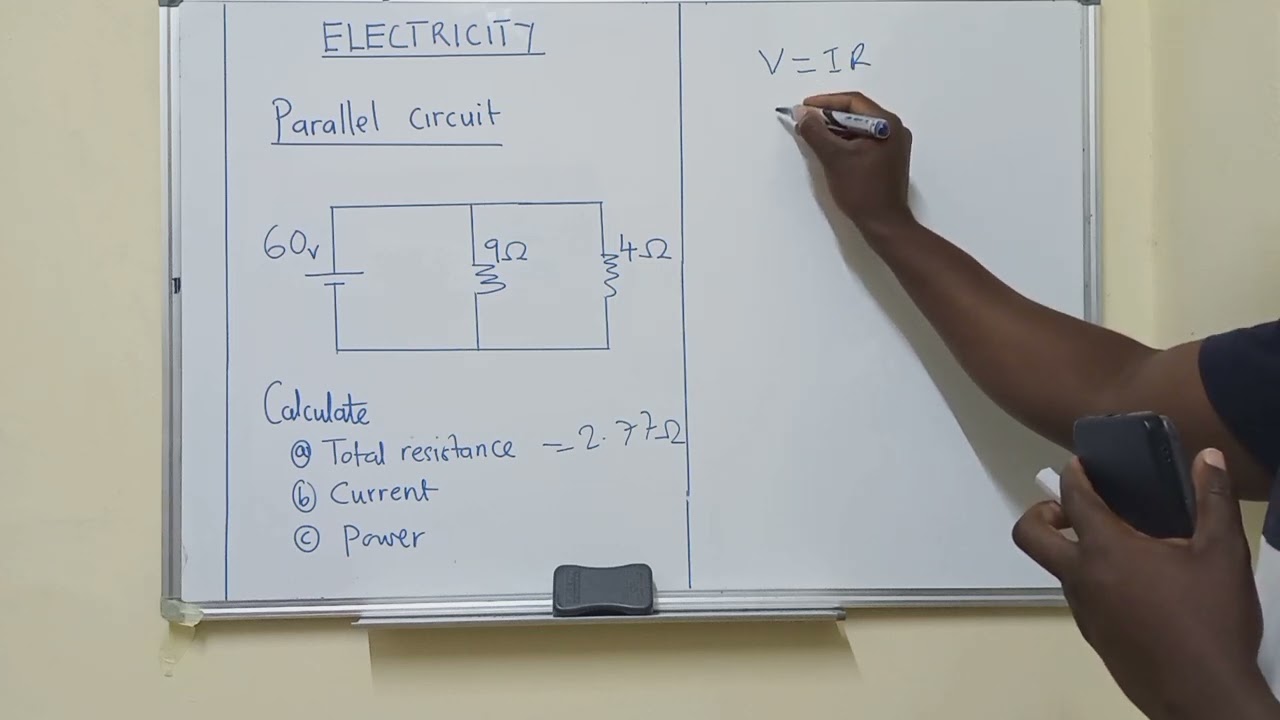 ELECTRICITY
Parallel circuit
60v
9Ω
4Ω
Calculate
ⓐ Total resistance = 2.77Ω
ⓑ Current
ⓒ Power
V = IR